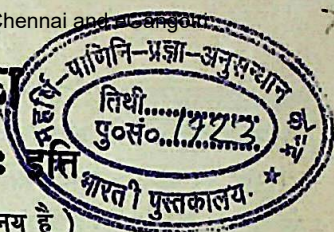 Chennai and eGangotri
महर्षि-पाणिनि-प्रज्ञा-अनुसन्धान
तिथी..........
पु०सं०..1923..
भारती पुस्तकालय. ★
इति
नय है )